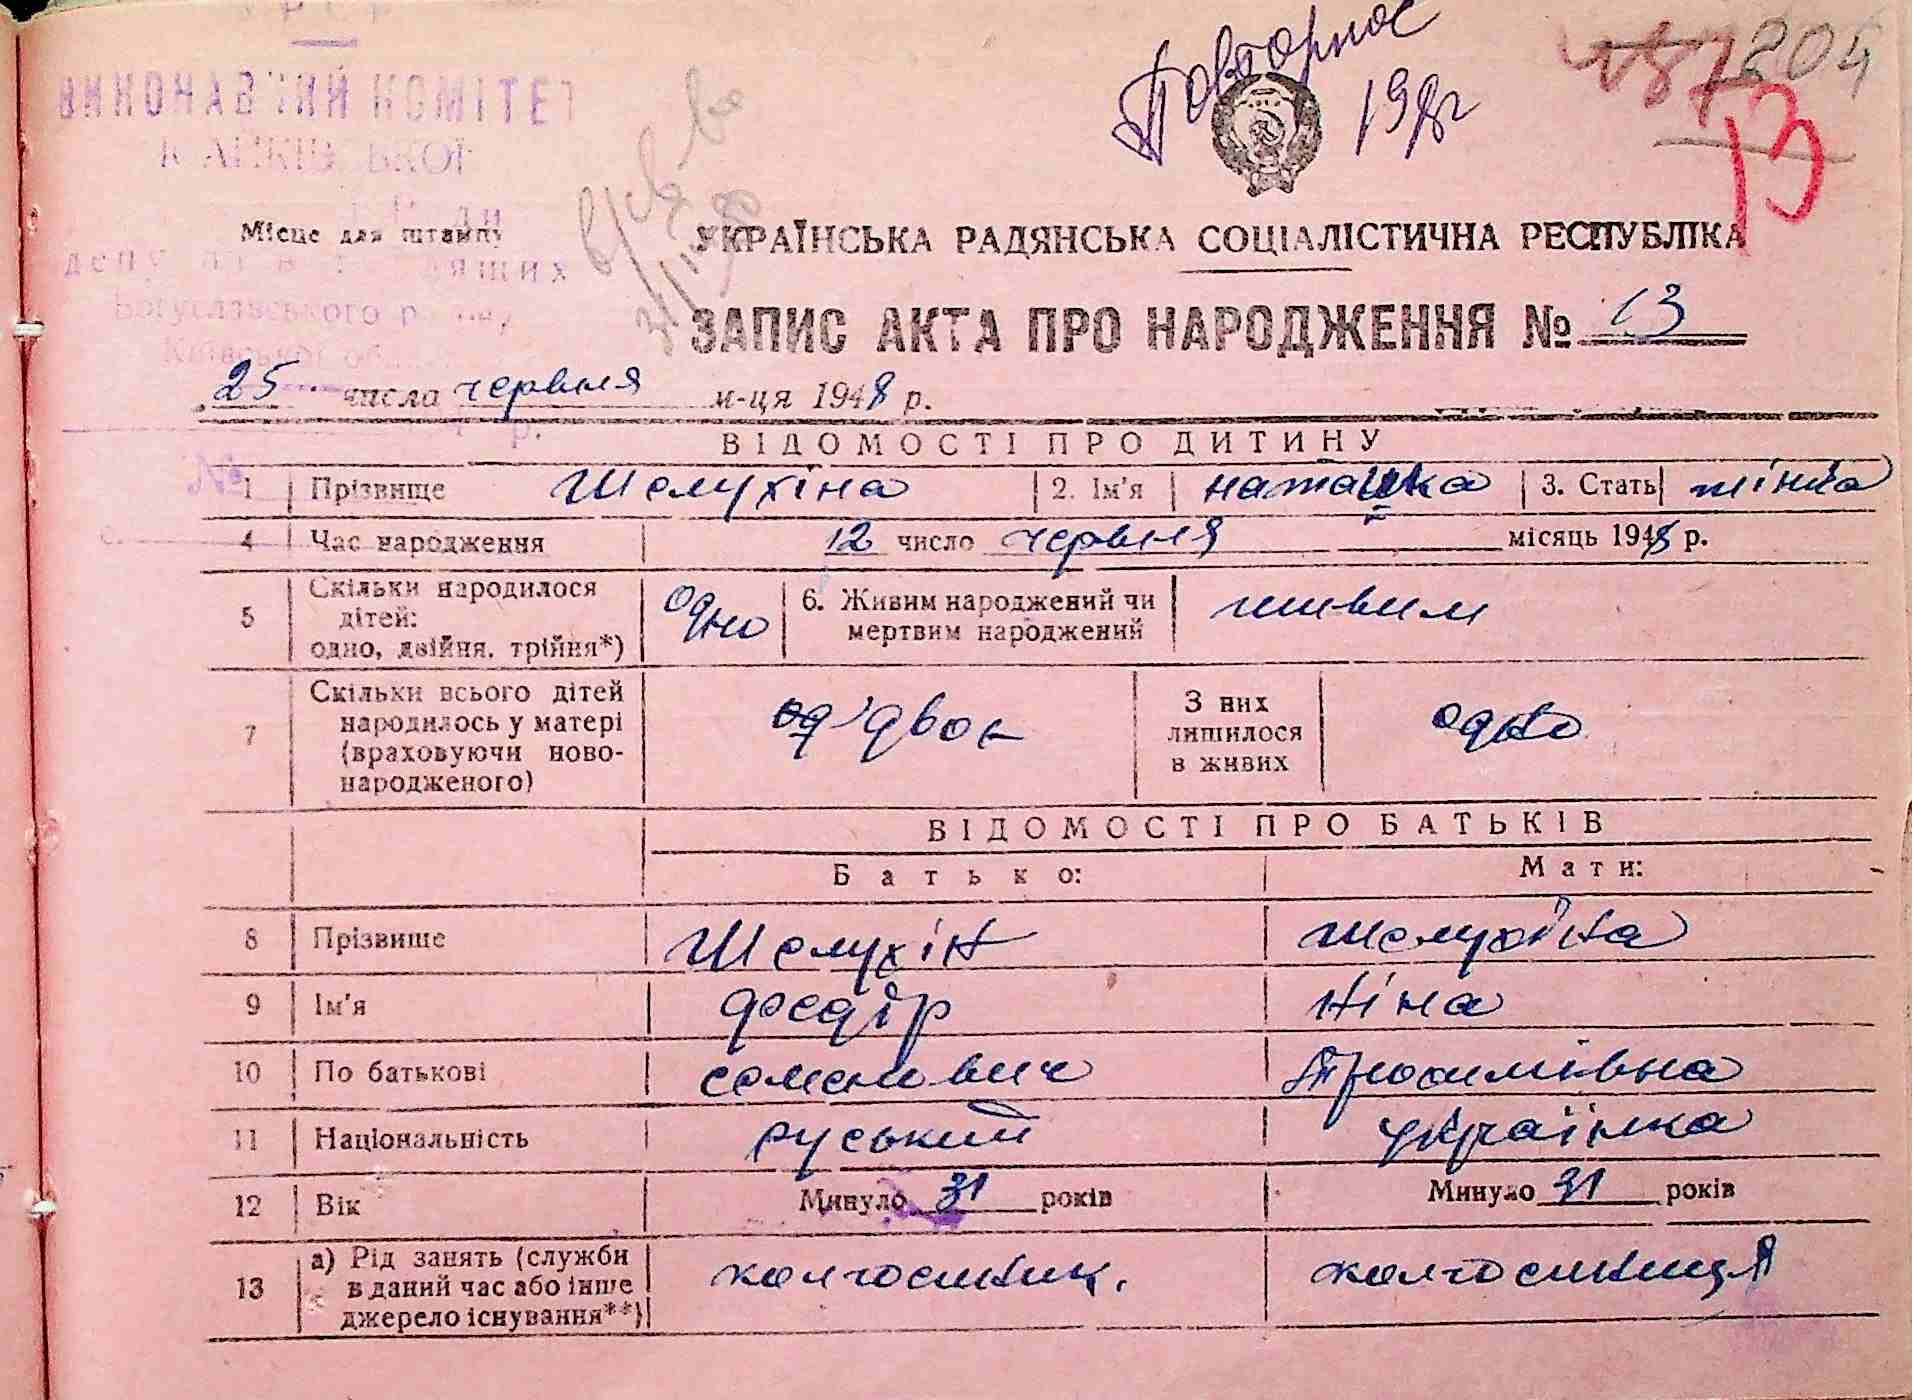 УРСР
ВИКОНАВЧИЙ КОМІТЕТ
Місце для штампу
Богуславського району
Київської обл
№
Повторное
198 г
204
13
УКРАЇНСЬКА РАДЯНСЬКА СОЦІАЛІСТИЧНА РЕСПУБЛІКА
ЗАПИС АКТА ПРО НАРОДЖЕННЯ № 13
25 числа червня м-ця 1948 р.
ВІДОМОСТІ ПРО ДИТИНУ
1 Прізвище Шелухіна 2. Ім'я Наташка 3. Стать жінка
4 Час народження 12 число червня місяць 1948 р.
5 Скільки народилося дітей: одно, двійня, трійня*) одно 6. Живим народжений чи мертвим народжений живим
7 Скільки всього дітей народилось у матері (враховуючи ново-народженого) од двоє З них лишилося в живих одно
ВІДОМОСТІ ПРО БАТЬКІВ
Батько: Мати:
8 Прізвище Шелухін Шелухіна
9 Ім'я Федір Ніна
10 По батькові Семенович Трохимівна
11 Національність руський українка
12 Вік Минуло 31 років Минуло 31 років
13 а) Рід занять (служби в даний час або інше джерело існування**) колгоспник. колгоспниця